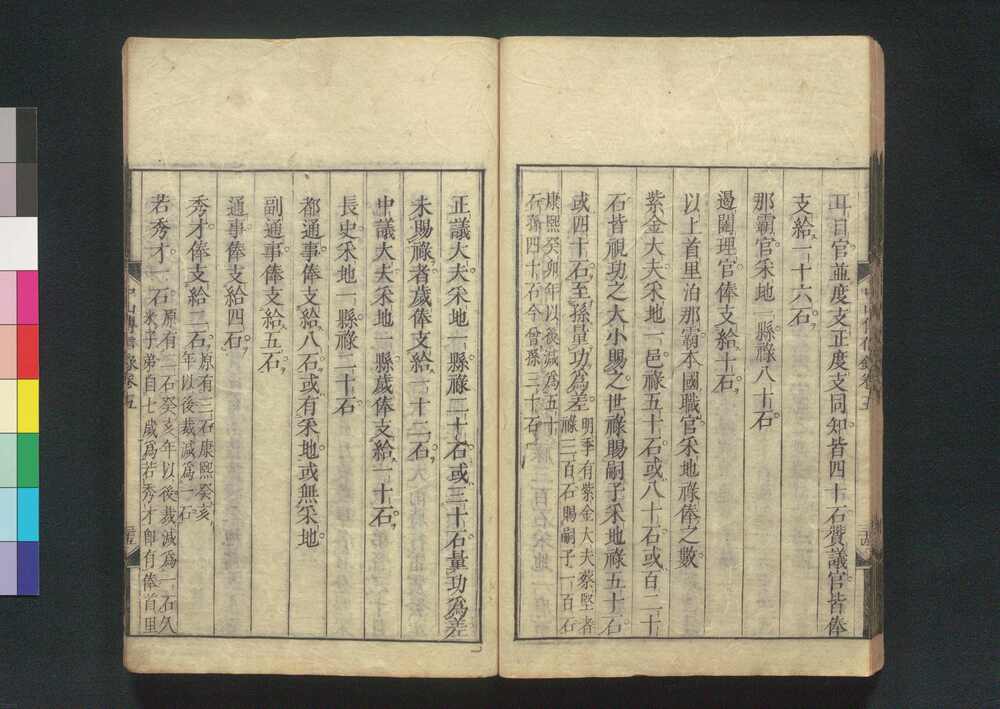 耳目官並度支正度支同知皆四十石贊議官皆俸
支給一十六石
那霸官采地一縣祿八十石
邊閫理官俸支給十石
以上首里泊那霸本國職官采地祿俸之數
紫金大夫采地一邑祿五十石或八十石或百二十
石皆視功之大小賜之世祿賜嗣子采地祿五十石
或四十石至孫量功為差明季有紫金大夫蔡堅者
祿三百石賜嗣子一百石
康熙癸卯年以後減為五十
石喬四十石今曾孫三十石
正議大夫采地一縣祿二十石或三十石量功為差
未賜祿者歲俸支給一十二石
中議大夫采地一縣歲俸支給一十石
長史采地一縣祿二十石
都通事俸支給八石或有采地或無采地
副通事俸支給五石
通事俸支給四石
秀才俸支給二石原有三石康熙癸亥
年以後裁減為一石
若秀才一石原有二石癸亥年以後裁減為一石久
米子弟自七歲為若秀才即有俸首里
中山傳信錄卷五